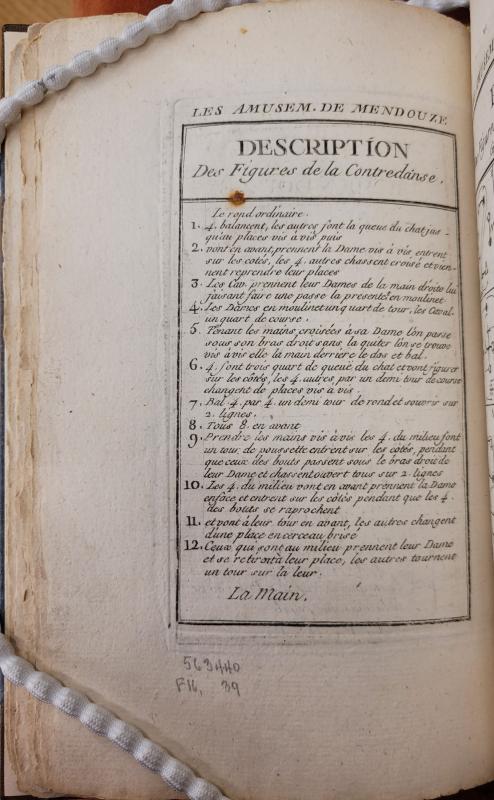 LES AMUSEM. DE MENDOUZE
DESCRIPTION
Des Figures de la Contredanse.
Le rond ordinaire.
1. 4. balancent, les autres font la queue du chat jus-
qu'au places vis à vis puis
2. vont en avant, prennent la Dame vis à vis entrent
sur les cotés, les 4. autres chassent croisé et vien-
nent reprendre leur places
3. Les Cav. prennent leur Dames de la main droite lui
faisant faire une passe la presente! en moulinet
4. Les Dames en moulinet un quart de tour, les Caval.
un quart de course.
5. Tenant les mains croisées à sa Dame l'on passe
sous son bras droit sans la quiter l'on se trouve
vis à vis elle la main derriere le dos et bal.
6. 4. font trois quart de queuë du chat et vont figurer
sur les côtés, les 4. autres, par un demi tour de course
changent de places vis à vis.
7. Bal. 4. par 4. un demi tour de rond et s'ouvrir sur
2. lignes.
8. Tous 8. en avant
9. Prendre les mains vis à vis les 4. du milieu font
un tour de poussette entrent sur les cotés, pendant
que ceux des bouts passent sous le bras droit de
leur Dame et chassent ouvert tous sur 2. lignes
10. Les 4. du milieu vont en avant prennent la Dame
enface et entrent sur les côtés pendant que les 4.
des bouts se raprochent
11. et vont à leur tour en avant, les autres changent
d'une place en cerceau brisé
12. Ceux qui sont au milieu prennent leur Dame
et se retirent à leur place, les autres tournent
un tour sur la leur.
La Main.
563440
F16, 39